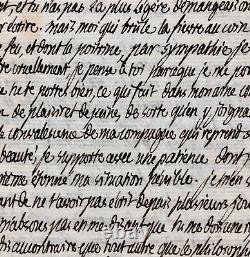 et tu n'as pas la plus légère demangeaison
écrire. mais moi qui brûle la fievre au coin
feu et dont la poitrine, par sympathie je
cruellement, je pense à toi parceque je ne po
notre bien, ce qui fait dans mon ame
de plaisir et de peine, de sorte qu'en y joignant
convalescence de ma compagne qui reprend s
beauté, je supporte avec une patience dont
même étonné ma situation penible. je m'en
ant de ne t'avoir pas écrit depuis plusieurs jou
absous pas en me disant que tu me donne
dis au contraire que tout autre que le philosop
ebay